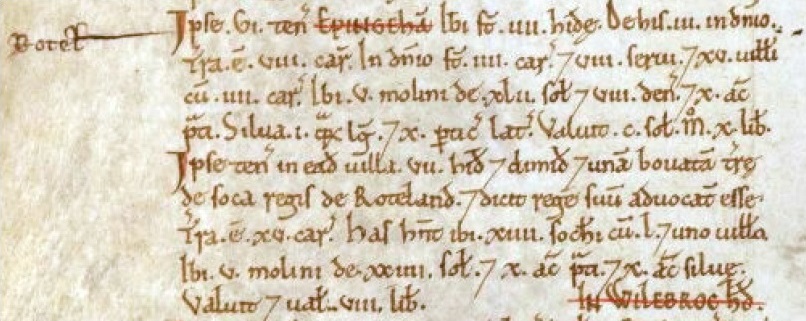 Rotel
Ipse .Vi. teñ Epingehā. Ibi sт̄ .IIII. hidę. De his .III. in dn̄io.
T̄ra .ē. VIII. car̄. In dn̄io sт̄ .IIII. car̄. ⁊ VIII. serui. ⁊ XV. uiłłi
cū .IIII. car̄. Ibi .V. molini de .XLII. soł ⁊ VIII. deñ. ⁊ X. ac̄
p̄ti. Silua .I. q̄ꝝ lḡ. ⁊ X. ꝑtic̄ lat̄. Valuit .C. soł. M̊. X. lib̄.
Ipse teñ in ead̄ uilla .VII. hid̄ ⁊ dimid̄ ⁊ unā bouatā t̄rę
de soca regis de Roteland. ⁊ dicit regē suū aduocat̄ esse.
T̄ra .ē. XV. car̄. Has hn̄t ibi .XIIII. socħi cū .L. ⁊ uno uiłła
Ibi .V. molini de .XXIIII. soł. ⁊ X. ac̄ p̄ti. ⁊ X. ac̄ siluę.
Valuit ⁊ uał .VIII. lib̄.
IN WILEBROC HD̄.